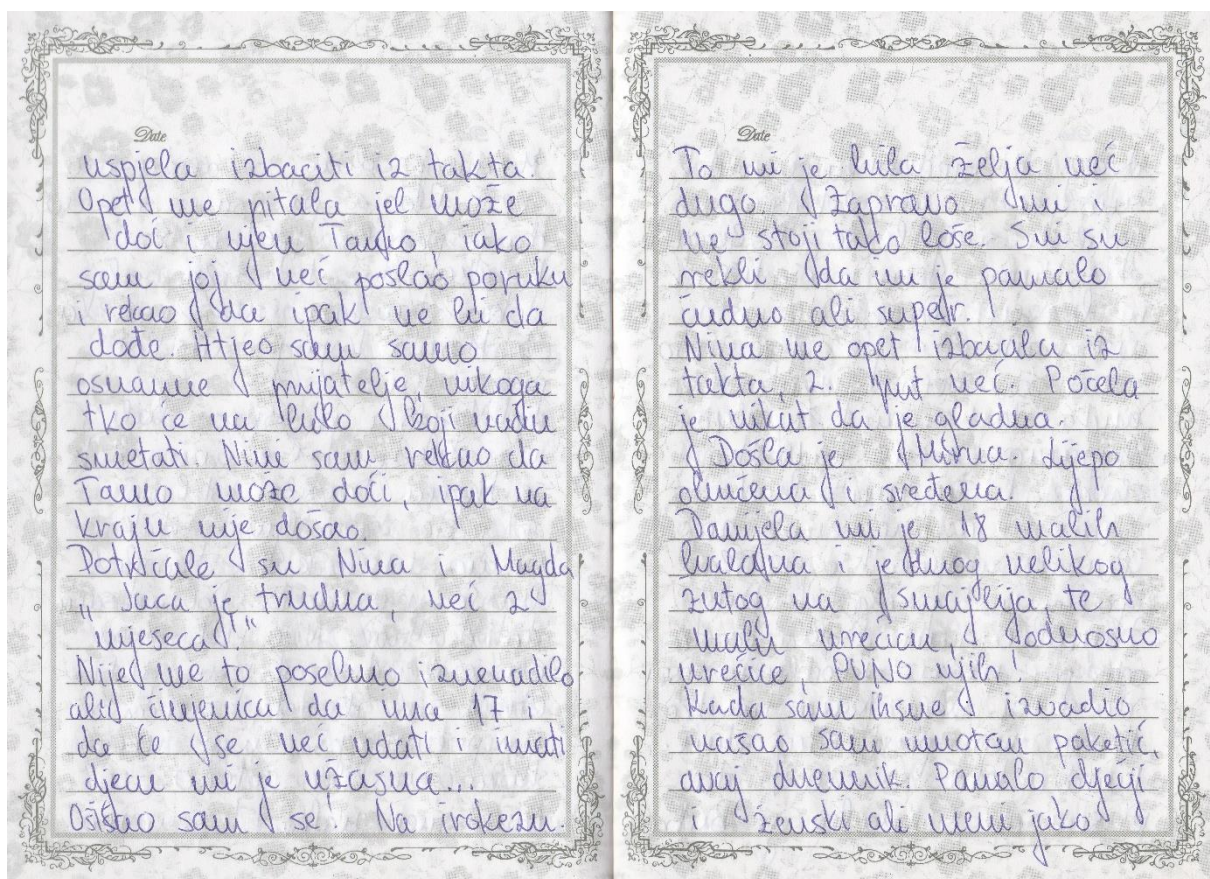 Date
uspjela izbaciti iz takta.
Opet me pitala jel može
doć i njen Tamo, iako
sam joj već poslao poruku
i rekao da ipak ne bi da
dođe. Htjeo sam samo
osnovne prijatelje, nikoga
tko će na bilo koji način
smetati. Nini sam rekao da
Tamo može doći, ipak na
kraju nije došao.
Dotrčale su Nina i Magda
„Jaca je trudna, već 2
mjeseca!"
Nije me to posebno iznenadilo
ali činjenica da ima 17 i
da će se već udati i imati
djecu mi je užasna...
Ošišao sam se. Na irokezu.
Date
To mi je bila želja već
dugo. Zapravo mi i
ne stoji tako loše. Svi su
rekli da im je pamalo
čudno ali super.
Nina me opet izbacila iz
takta, 2. put već. Počela
je vikat da je gladna.
Došla je Mirna. Lijepo
obučena i sređena.
Danijela mi je 18 malih
balona i jednog velikog
žutog na smajlija, te
malu vrećicu, odnosno
vrećice, PUNO njih!
Kada sam ih sve izvadio
našao sam umotan paketić,
ovaj dnevnik. Pamalo dječji
i ženski ali meni jako